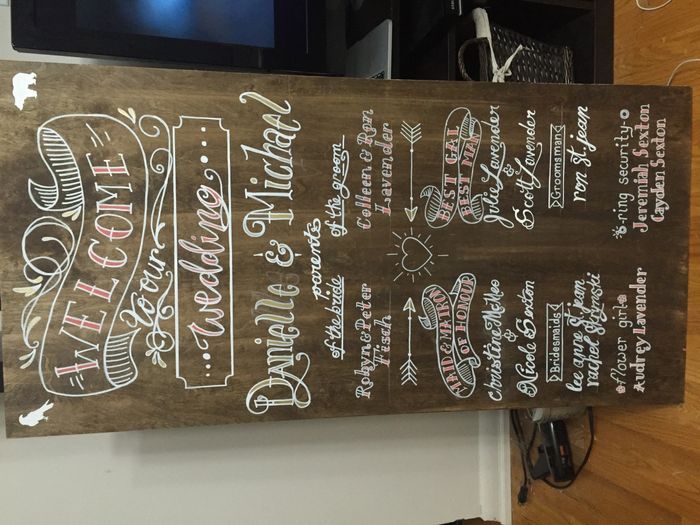 WELCOME
to our
wedding
Danielle & Michael
parents
of the bride
Robyn & Peter
of the groom
Colleen & Ron
Lavender
MAID & MATRON
OF HONOUR
Christine
&
Nicole Sexton
Bridesmaids
lee anne St. jean
rachel
flower girl
Audrey Lavender
BEST GAL
BEST MAN
Julie Lavender
&
Scott Lavender
Groomsman
ron St. jean
ring security
Jeremiah Sexton
Cayden Sexton